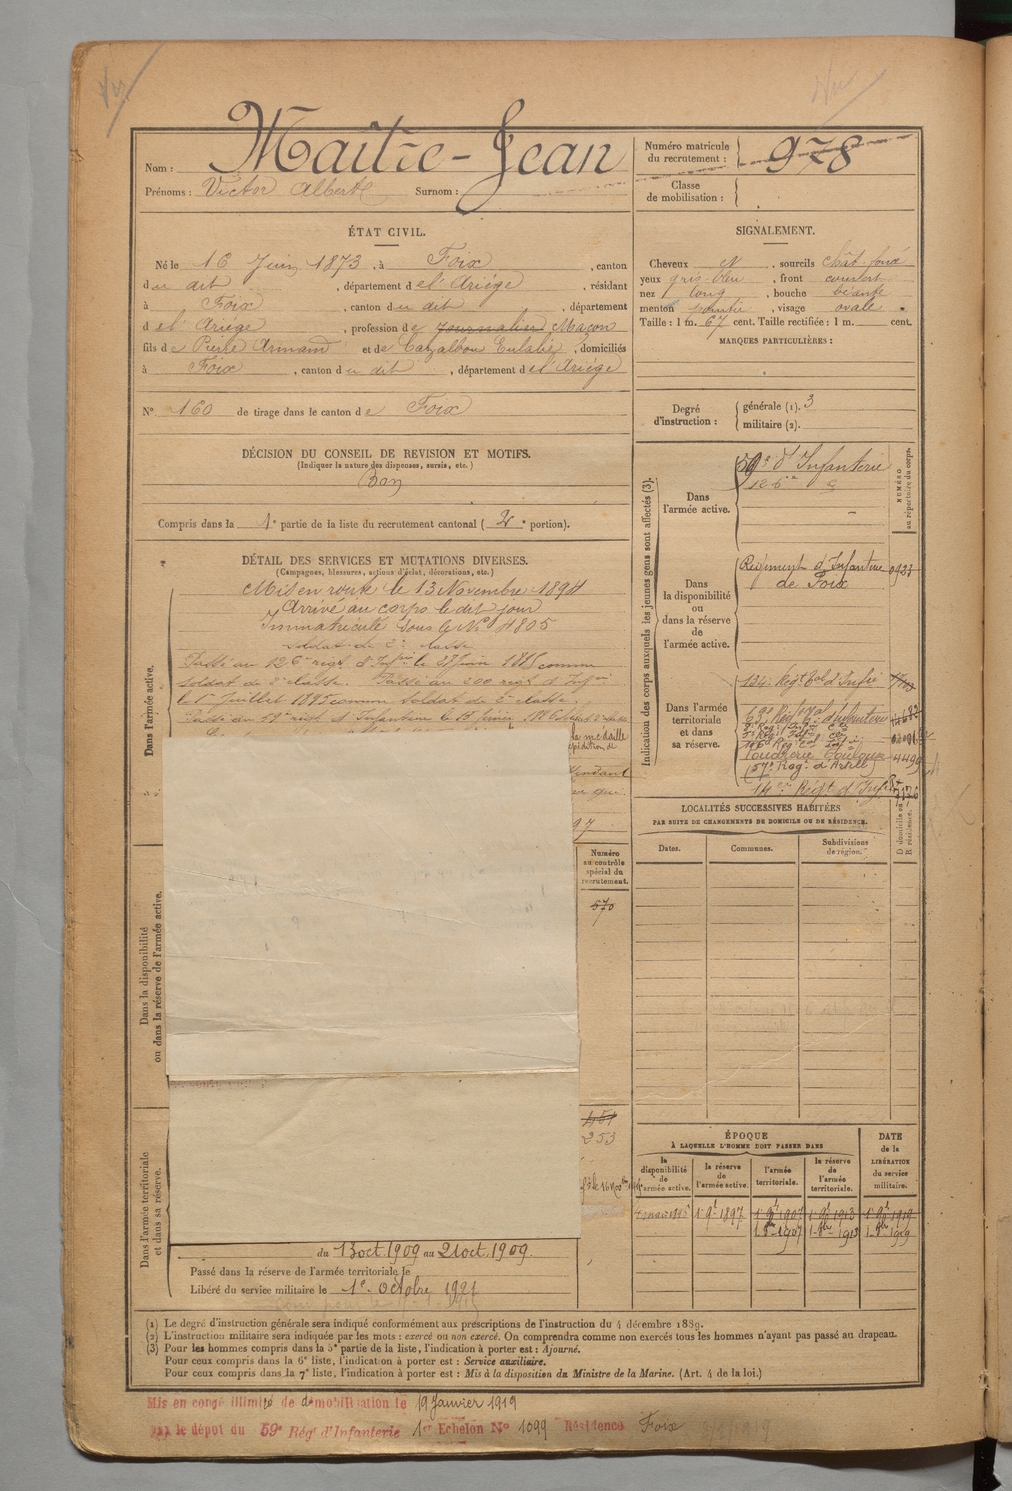 Nom : Maître-Jean
Prénoms : Victor Albert Surnom :
Numéro matricule du recrutement : 978
Classe de mobilisation :
ÉTAT CIVIL.
Né le 16 Juin 1873, à Foix, canton
du dit, département de l'Ariège, résidant
à Foix, canton du dit, département
de l'Ariège, profession de Journalier Maçon
fils de Pierre Armand et de Cazalbou Eulalie, domiciliés
à Foix, canton du dit, département de l'Ariège
N° 160 de tirage dans le canton de Foix
SIGNALEMENT.
Cheveux N, sourcils chât. foncé
yeux gris-bleu, front
nez long, bouche
menton pointu, visage ovale
Taille : 1 m. 67 cent. Taille rectifiée : 1 m. cent.
MARQUES PARTICULIÈRES :
Degré d'instruction : générale (1). 3
militaire (2).
DÉCISION DU CONSEIL DE REVISION ET MOTIFS.
(Indiquer la nature des dispenses, sursis, etc.)
Bon
Compris dans la 1e partie de la liste du recrutement cantonal (2e portion).
DÉTAIL DES SERVICES ET MUTATIONS DIVERSES.
(Campagnes, blessures, actions d'éclat, décorations, etc.)
Dans l'armée active.
Mis en route le 13 Novembre 1894
Arrivé au corps le dit jour
Immatriculé sous le N° 4805
soldat de 2e classe
Passé au 126e régt d'Infrie le juin comme
soldat de 2e classe. Passé au 200 régt d'Infrie
le 1er Juillet 1895 comme soldat de 2e classe.
Passé au 59e régt d'Infanterie le
la médaille
97
Numéro au contrôle spécial du recrutement.
670
Dans la disponibilité ou dans la réserve de l'armée active.
Dans l'armée territoriale et dans sa réserve.
253
du 13 oct. 1909 au 21 oct. 1909.
Passé dans la réserve de l'armée territoriale le
Libéré du service militaire le 1e octobre 1921
Indication des corps auxquels les jeunes gens sont affectés (3).
NUMÉRO au répertoire du corps.
Dans l'armée active.
59e d'Infanterie
126e
Dans la disponibilité ou dans la réserve de l'armée active.
Régiment d'Infanterie 0923
de Foix
Dans l'armée territoriale et dans sa réserve.
134e Régt tal d'Infie
Poudrerie Toulouse
(57e Régt d'Artlie)
14e Régt d'Infie
LOCALITÉS SUCCESSIVES HABITÉES
PAR SUITE DE CHANGEMENTS DE DOMICILE OU DE RÉSIDENCE.
Dates. Communes. Subdivisions de région. D domicile ou R résidence.
ÉPOQUE
À LAQUELLE L'HOMME DOIT PASSER DANS
DATE de la LIBÉRATION du service militaire.
la disponibilité de l'armée active. la réserve de l'armée active. l'armée territoriale. la réserve de l'armée territoriale.
1 9e 1897 1 9t 1907 1 9t 1913 1 9t 1919
1 8re 1907 1 8re 1913 1 8re 1919
(1) Le degré d'instruction générale sera indiqué conformément aux prescriptions de l'instruction du 4 décembre 1889.
(2) L'instruction militaire sera indiquée par les mots : exercé ou non exercé. On comprendra comme non exercés tous les hommes n'ayant pas passé au drapeau.
(3) Pour les hommes compris dans la 5e partie de la liste, l'indication à porter est : Ajourné.
Pour ceux compris dans la 6e liste, l'indication à porter est : Service auxiliaire.
Pour ceux compris dans la 7e liste, l'indication à porter est : Mis à la disposition du Ministre de la Marine. (Art. 4 de la loi.)
Mis en congé illimité de démobilisation le 19 Janvier 1919
par le dépôt du 59e Régt d'Infanterie 1er Echelon N° 1099 Résidence Foix